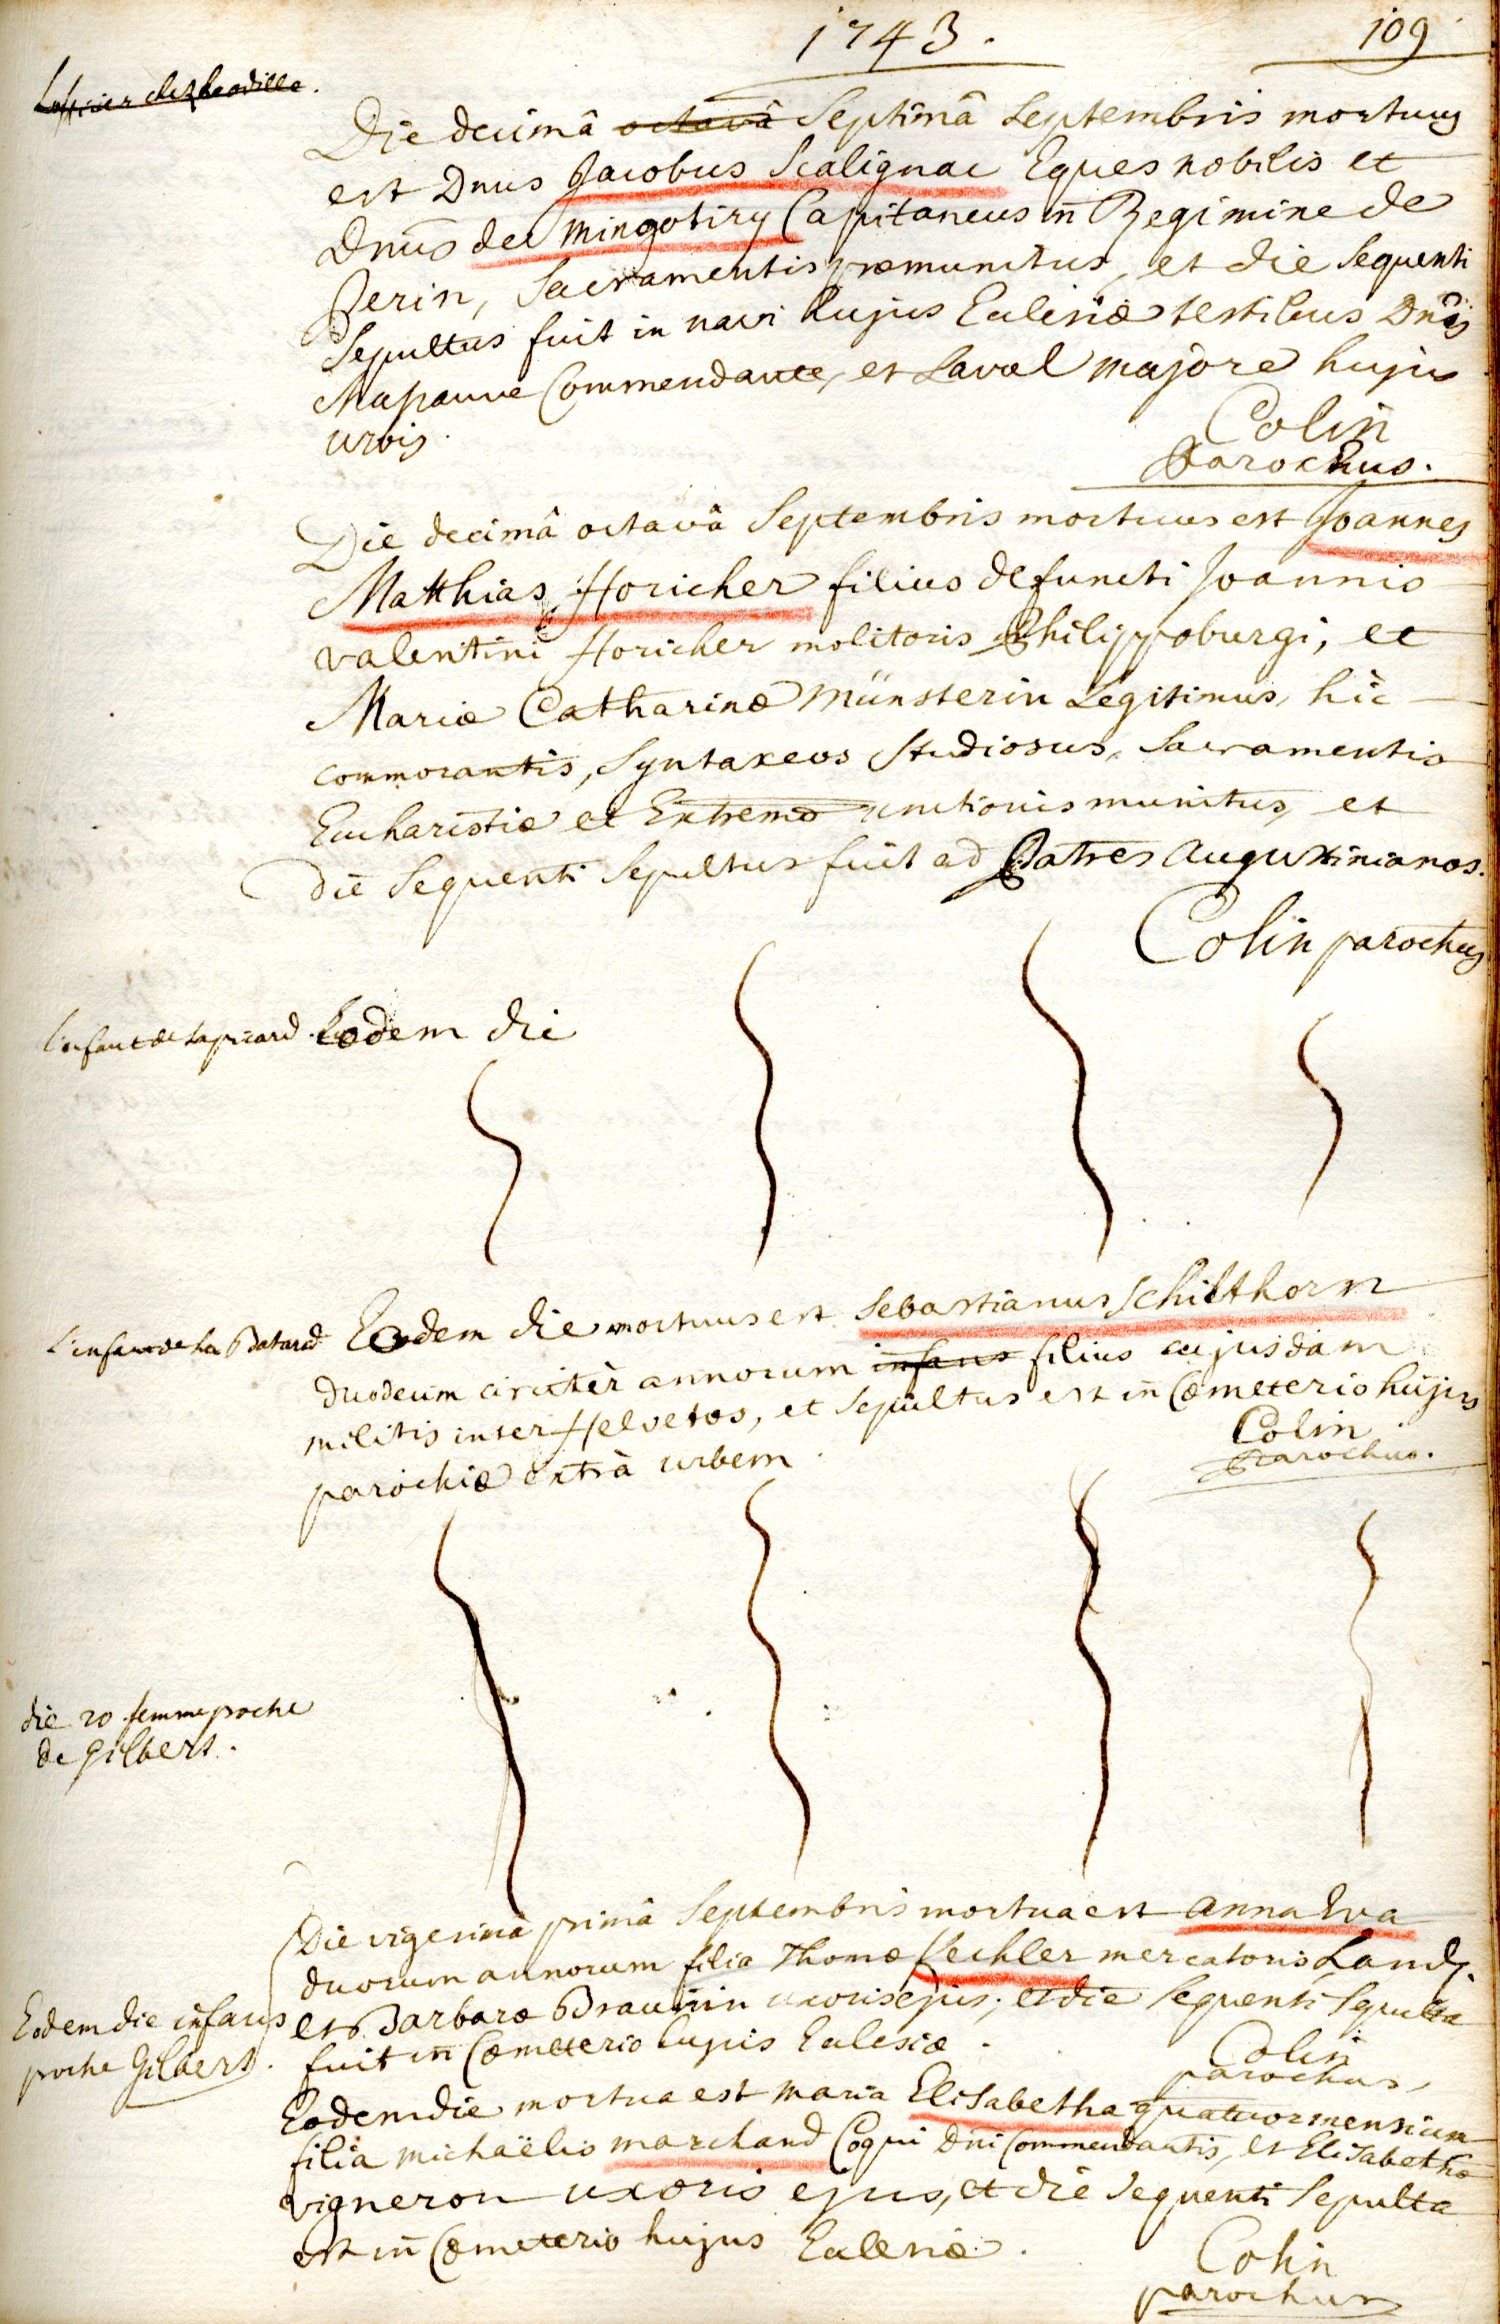 1743.
109
L'officier chez bordille.
Die decimâ octavâ Septimâ Septembris mortuus
est Dnus Jacobus Scalignac Eques nobilis et
Dnus de Mingotiry Capitaneus in Regimine de
Perin, Sacramentis præmunitus, et die sequenti
sepultus fuit in navi hujus Ecclesiæ testibus Dnis
Mapauve Commendante, et Laval majore hujus
urbis.
Colin
Parochus.
Die decimâ octavâ Septembris mortuus est Joannes
Matthias Horicher filius defuncti Joannis
Valentini Horicher molitoris Philippoburgi, et
Mariæ Catharinæ Münsterin Legitimus, hic
commorantis, Syntaxeos Studiosus, Sacramentis
Eucharistiæ et Extremæ unctionis munitus, et
die sequenti sepultus fuit ad Patres Augustinianos.
Colin parochus
l'enfant de Lapicard. Eodem die
L'enfant de la Batard Eodem die mortuus est Sebastianus Schiltkorn
duodecim circitèr annorum infans filius cujusdam
militis inter Helvetos, et sepultus est in Cœmeterio hujus
parochiæ extrà urbem.
Colin
Parochus.
die 20 femme proche
de Gilbert.
Die vigesimâ primâ Septembris mortua est Anna Eva
duorum annorum filia Thomæ Kechler mercatoris Land.
et Barbaræ Braunin uxoris ejus; et die sequenti sepulta
fuit in Cœmeterio hujus Ecclesiæ.
Colin
parochus,
Eodem die infans
proche Gilbert.
Eodem die mortua est Maria Elisabetha quatuor mensium
filia Michaëlis Marchand Coqui Dni Commendantis, et Elisabethæ
vigneron uxoris ejus, et die sequenti sepulta
est in Cœmeterio hujus Ecclesiæ.
Colin
parochus